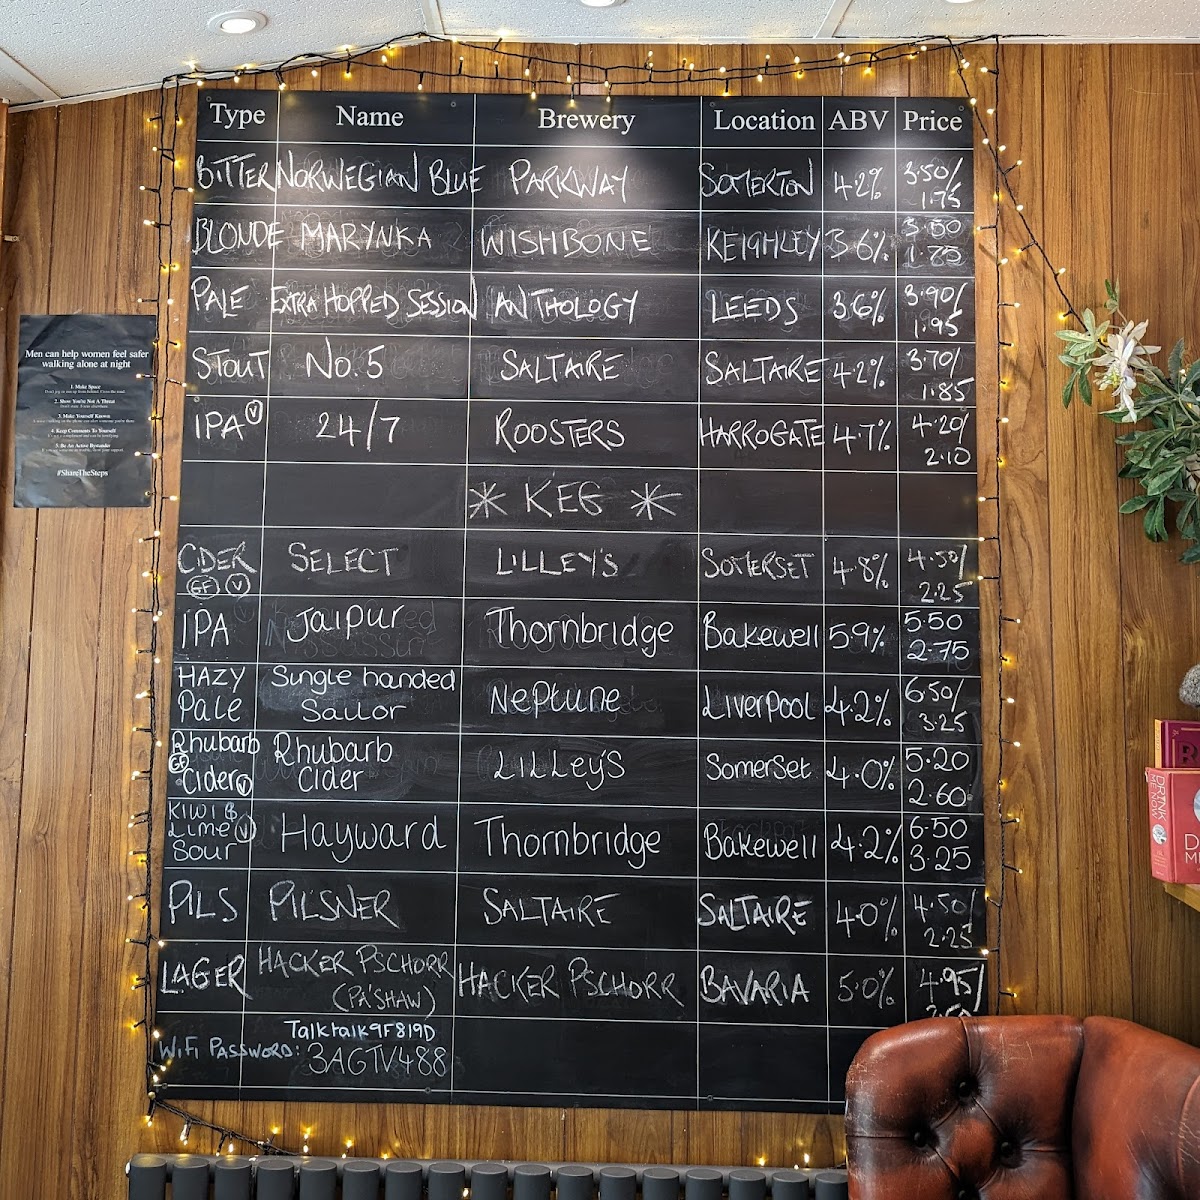 Type Name Brewery Location ABV Price
BITTER NORWEGIAN BLUE PARKWAY SOMERTON 4.2% 3.50/
1.75
BLONDE MARYNKA WISHBONE KEIGHLEY 3.6% 3.50
1.75
PALE EXTRA HOPPED SESSION ANTHOLOGY LEEDS 3.6% 3.90/
1.95
STOUT No.5 SALTAIRE SALTAIRE 4.2% 3.70/
1.85
IPA V 24/7 ROOSTERS HARROGATE 4.7% 4.20/
2.10
* KEG *
CIDER SELECT LILLEY'S SOMERSET 4.8% 4.50/
GF V 2.25
IPA Jaipur Thornbridge Bakewell 5.9% 5.50
2.75
HAZY Single handed Neptune Liverpool 4.2% 6.50/
Pale Sailor 3.25
Rhubarb Rhubarb LILLEY'S SomerSet 4.0% 5.20
GF Cider V Cider 2.60
KIWI &
LIME V Hayward Thornbridge Bakewell 4.2% 6.50
Sour 3.25
PILS PILSNER SALTAIRE SALTAIRE 4.0% 4.50/
2.25
LAGER HACKER PSCHORR HACKER PSCHORR BAVARIA 5.0% 4.95/
(PA'SHAW)
Talktalk9F819D
WiFi PASSWORD: 3AGTV488
Men can help women feel safer
walking alone at night
1. Make Space
2. Show You're Not A Threat
3. Make Yourself Known
4. Keep Comments To Yourself
5. Be An Active Bystander
#ShareTheSteps
DRINK